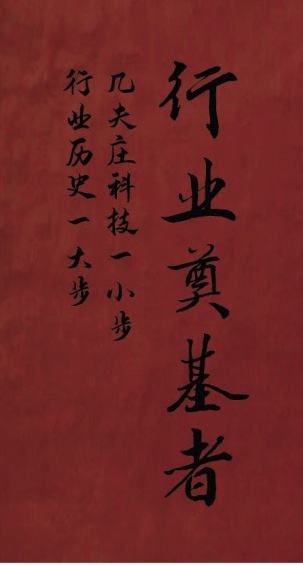 行业奠基者
凡夫庄科技一小步
行业历史一大步